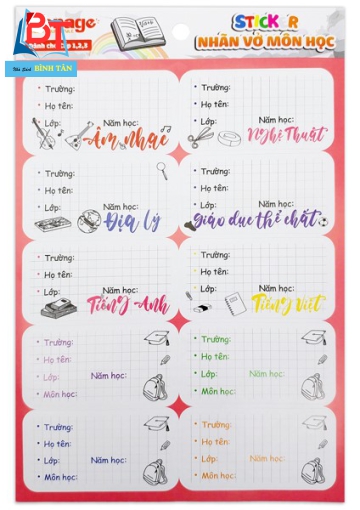 BT
Nhà Sách BÌNH TÂN
STICKER
NHÃN VỞ MÔN HỌC
Trường:
Họ tên:
Lớp: Năm học:
Âm nhạc
Trường:
Họ tên:
Lớp: Năm học:
Nghệ Thuật
Trường:
Họ tên:
Lớp: Năm học:
Địa lý
Trường:
Họ tên:
Lớp: Năm học:
Giáo dục thể chất
Trường:
Họ tên:
Lớp: Năm học:
Tiếng Anh
Trường:
Họ tên:
Lớp: Năm học:
Tiếng Việt
Trường:
Họ tên:
Lớp: Năm học:
Môn học:
Trường:
Họ tên:
Lớp: Năm học:
Môn học:
Trường:
Họ tên:
Lớp: Năm học:
Môn học:
Trường:
Họ tên:
Lớp: Năm học:
Môn học: